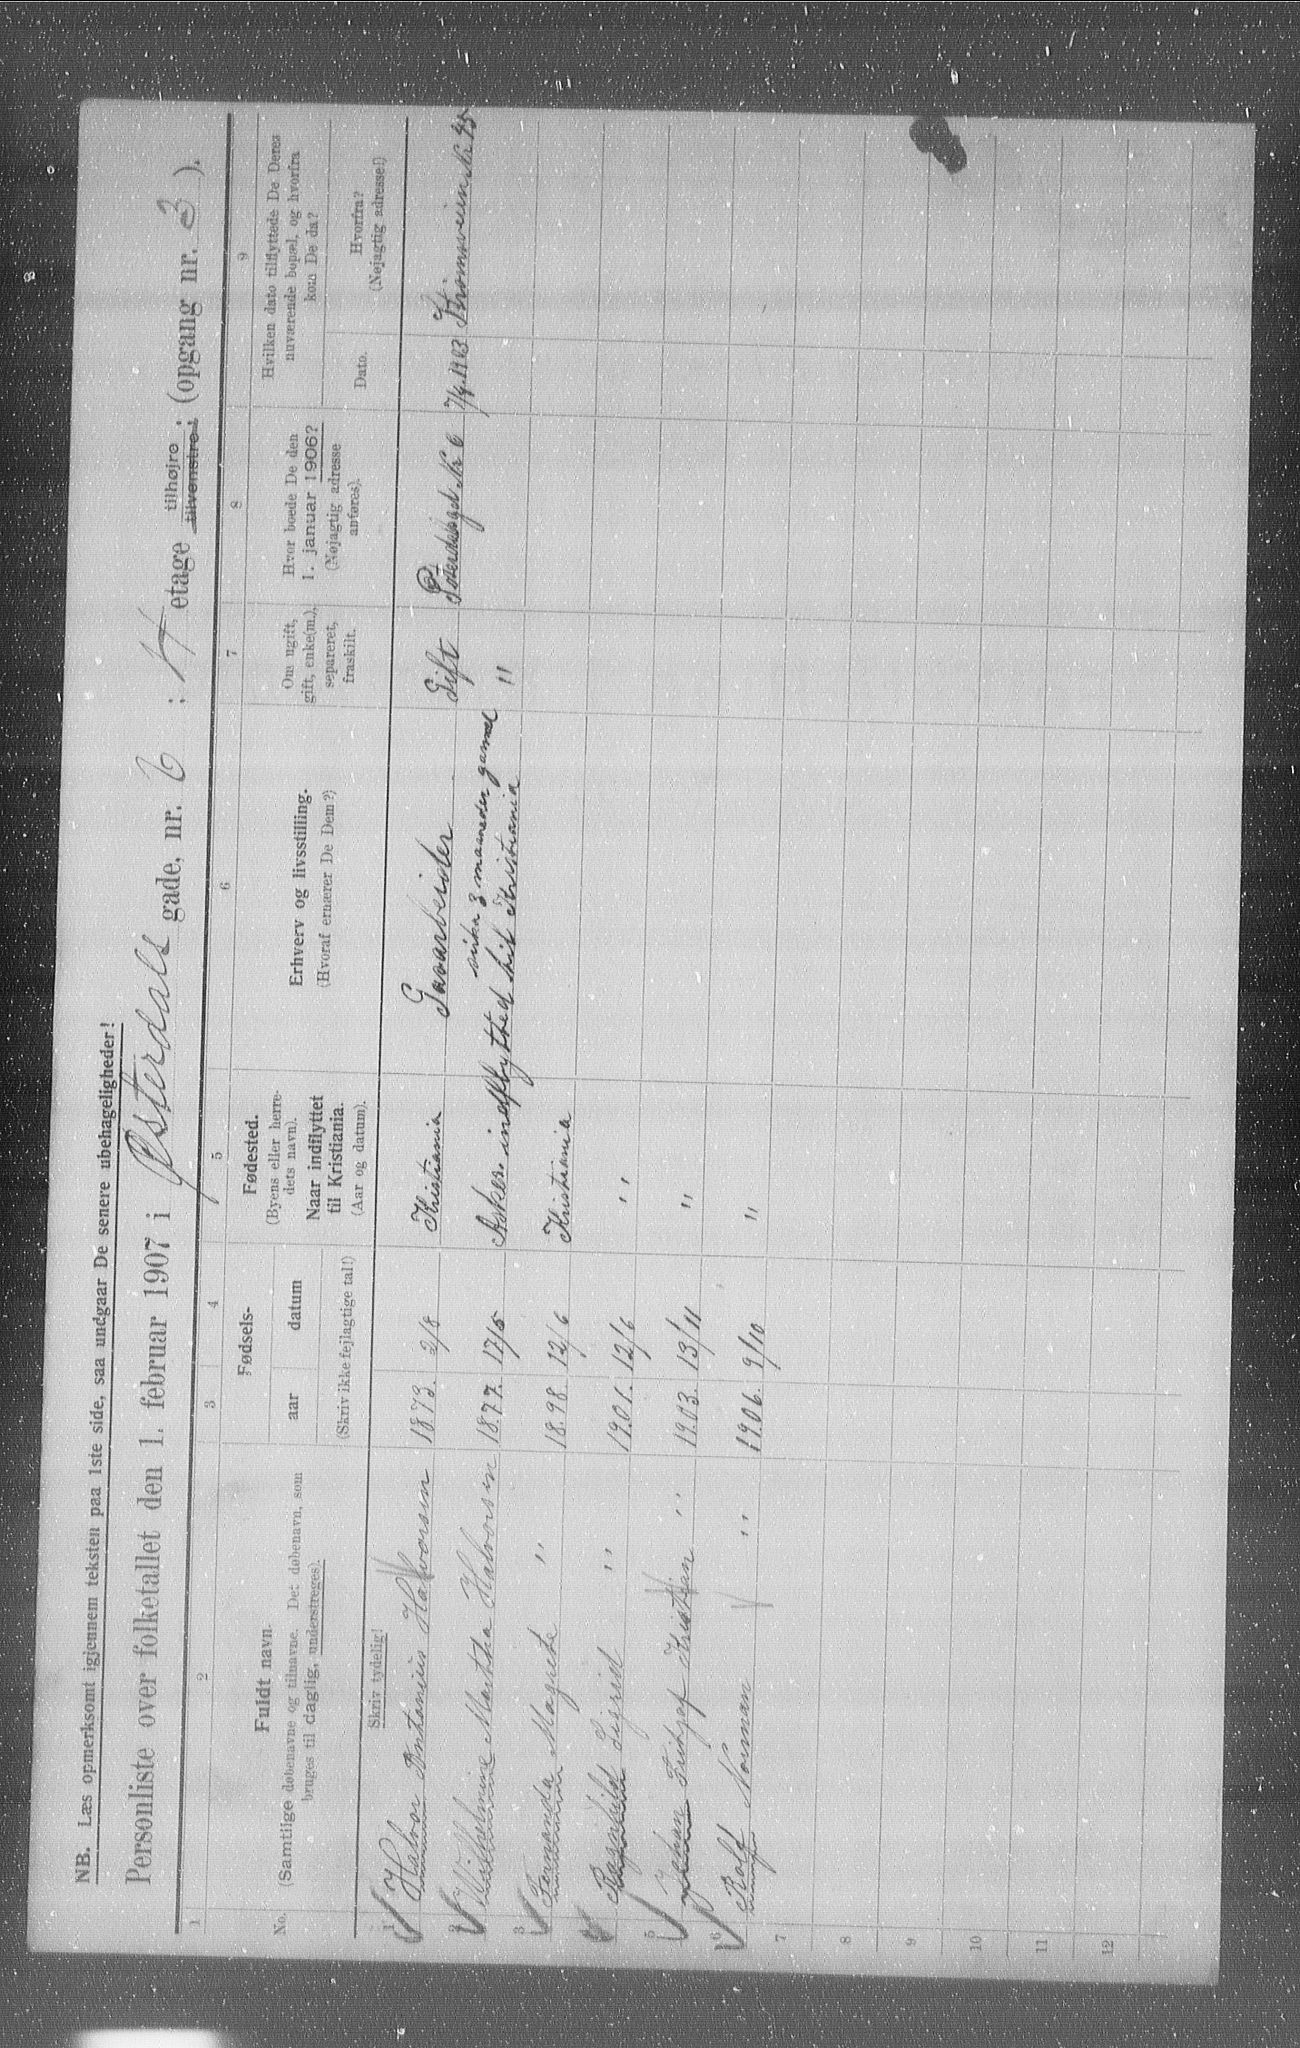 NB. Læs opmerksomt igjennem teksten paa 1ste side, saa undgaar De senere ubehageligheder!
Personliste over folketallet den 1. februar 1907 i Østerdals gade, nr. 6 ; 4 etage tilhøjre ; tilvenstre ; (opgang nr. 3 ).
1 2 3 4 5 6 7 8 9
No. Fuldt navn. (Samtlige døbenavne og tilnavne. Det døbenavn, som bruges til daglig, understreges).
Skriv tydelig!
Fødsels- aar datum (Skriv ikke fejlagtige tal!)
Fødested. (Byens eller herredets navn). Naar indflyttet til Kristiania. (Aar og datum).
Erhverv og livsstilling. (Hvoraf ernærer De Dem?)
Om ugift, gift, enke(m.), separeret, fraskilt.
Hvor boede De den 1. januar 1906? (Nøjagtig adresse anføres).
Hvilken dato tilflyttede De Deres nuværende bopæl, og hvorfra kom De da?
Dato. Hvorfra? (Nøjagtig adresse!)
1 Halvor Antonius Halvorsen 1873. 2/8 Kristiania Gasarbeider Gift Østerdalsgd. No 6 1/4 1903 Strømsveien No 95
2 Wilhelmine Martha Halvorsen 1877. 17/5 Asker. indflytted sirka 3 maaneder gammel hit Kristiania "
3 Fernanda Magrete " 1898. 12/6 Kristiania
4 Ragnhild Sigrid " 1901. 12/6 "
5 Johan Fritjof Kristian " 1903. 13/11 "
6 Rolf Norman " 1906. 9/10 "
7
8
9
10
11
12